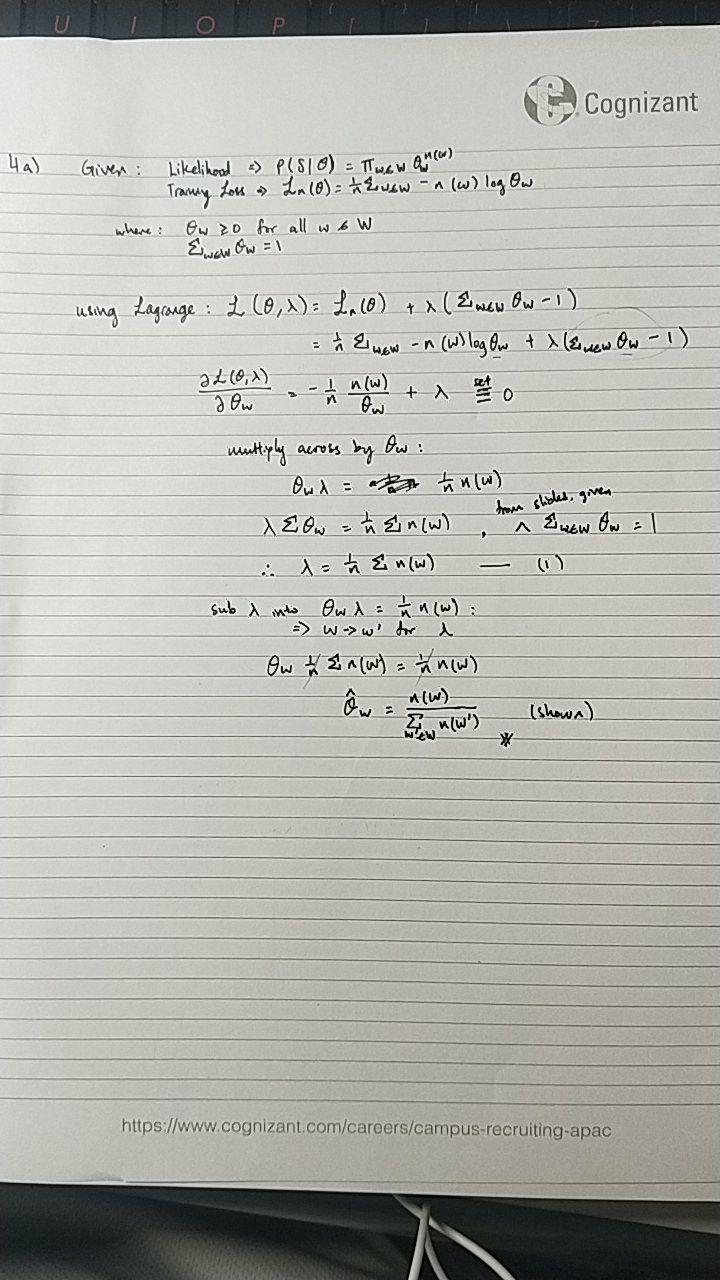 U I O P [ ]
Cognizant
4a) Given: Likelihood => P(S|θ) = Π_{w∈W} θ_w^{n(w)}
Training Loss => ℒ_n(θ) = 1/n Σ_{w∈W} - n(w) log θ_w
where: θ_w ≥ 0 for all w ∈ W
Σ_{w∈W} θ_w = 1
using Lagrange: ℒ(θ,λ) = ℒ_n(θ) + λ(Σ_{w∈W} θ_w - 1)
= 1/n Σ_{w∈W} - n(w) log θ_w + λ(Σ_{w∈W} θ_w - 1)
∂ℒ(θ,λ)/∂θ_w = - 1/n n(w)/θ_w + λ set ≡ 0
multiply across by θ_w:
θ_w λ = 1/n n(w)
from slides, given
λ Σ θ_w = 1/n Σ n(w) , ∧ Σ_{w∈W} θ_w = 1
∴ λ = 1/n Σ n(w) — (1)
sub λ into θ_w λ = 1/n n(w) :
=> w → w' for λ
θ_w 1/n Σ n(w') = 1/n n(w)
θ̂_w = n(w) / Σ_{w'∈W} n(w') (shown)
https://www.cognizant.com/careers/campus-recruiting-apac